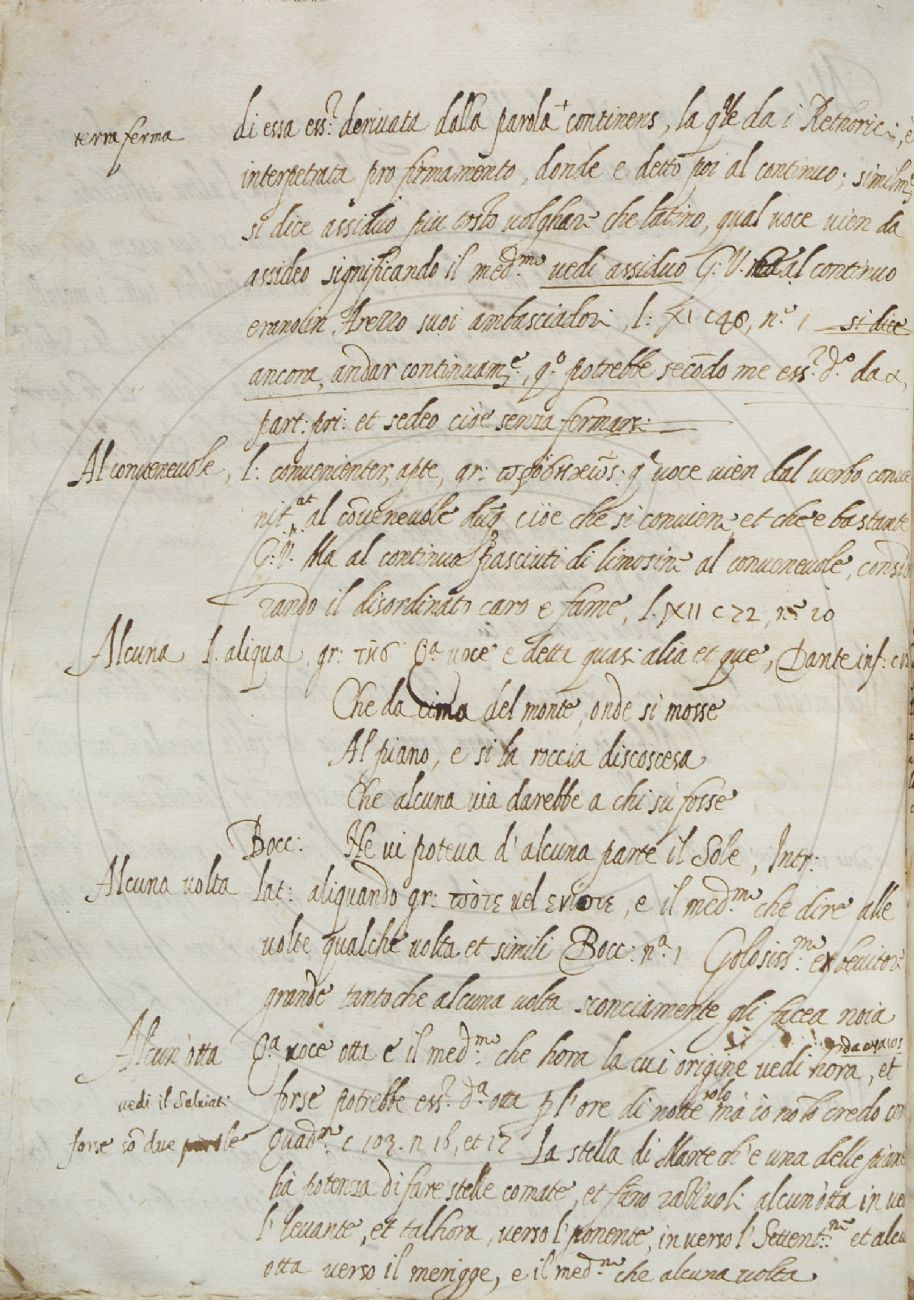 terra ferma
di essa ess.r derivata dalla parola + continens, la q.le da i Rethorici, e
interpetrata pro firmamento, donde e detto poi al continuo; similm.
si dice assiduo piu tosto volghare che latino, qual voce vien da
assideo significando il med.mo vedi assiduo G: V: al continuo
erano in Arezzo suoi ambasciadori, l: XI c 48, n.o 1 si dice
ancora, andar continuam.e, q.o potrebbe secōdo me ess.r d.o da α,
part: pri: et sedeo cióe senza fermarsi:
Al convenevole, l: convenienter, apte, gr: q.a voce vien dal verbo conve
nit.at al cōvenevole cióe che si conviene et che e bastante
G: V: Ma al continuo pasciuti di limosine al convenevole, consid
rando il disordinato caro e fame, l. XII c 72, n.o 20
Alcuna l. aliqua, gr: τὶς Q.a voce e detta quasi alia et que, Dante inf: c
Che da cima del monte, onde si mosse
Al piano, e si la roccia discoscesa
Che alcuna via darebbe a chi sù fosse
Bocc: Ne vi poteva d'alcuna parte il Sole, Intr:
Alcuna volta lat: aliquando gr: πότε vel ενίοτε, e il med.mo che dire alle
volte qualche volta et simili Bocc: n.a 1 Golosiss.mo et bevitore
grande tanto che alcuna volta sconciamente gli facea noia
Alcun'otta Q.a voce otta e il med.mo che hora la cui origine vedi hora, et
vedi il Salviati
forse potrebbe ess.r d.a otta p l'ore di notte solo mà io nō lo credo
forse sō due parole Quad.n c 103. n 16, et 17 La stella di Marte ch'e una delle piane
hà potenza di fare stelle comate, et fāno alcun'otta in ve
l' levante, et talhora, verso l' ponente, in verso l' Settent.ne et alcu
otta verso il merigge, e il med.mo che alcuna volta